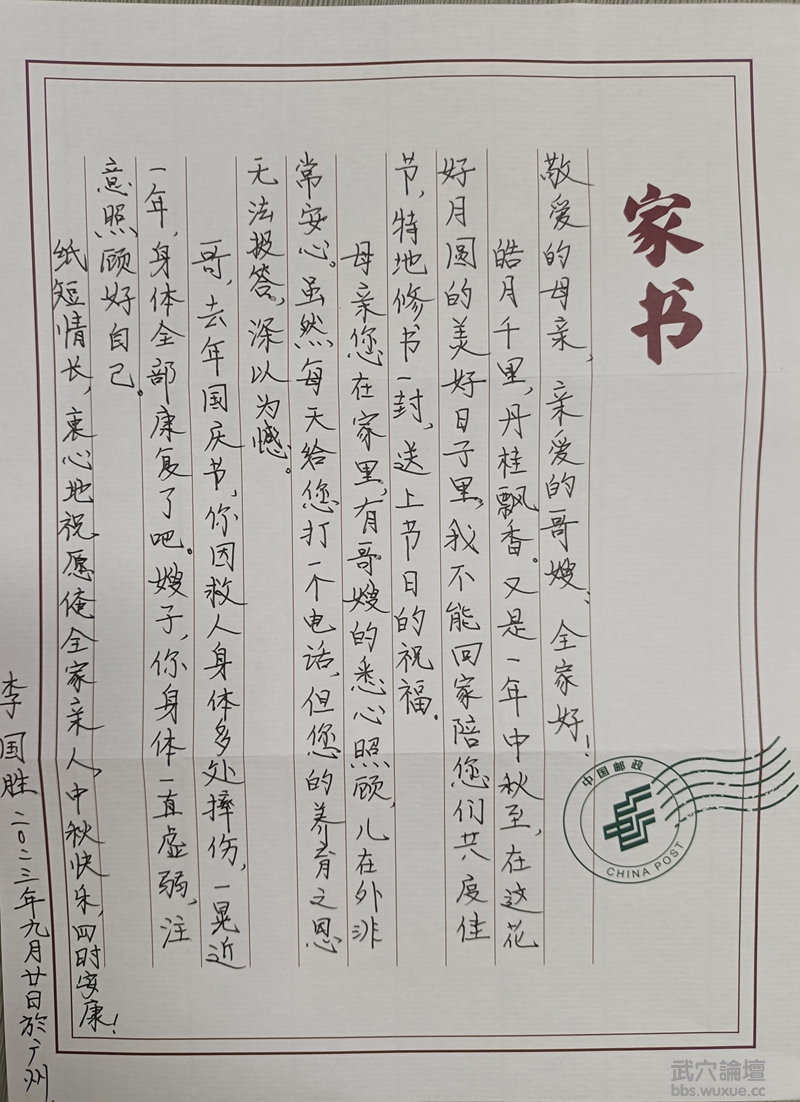 家书
敬爱的母亲,亲爱的哥嫂:全家好!
皓月千里,丹桂飘香。又是一年中秋至,在这花
好月圆的美好日子里,我不能回家陪您们共度佳
节,特地修书一封,送上节日的祝福.
母亲您在家里,有哥嫂的悉心照顾,儿在外非
常安心。虽然每天给您打一个电话,但您的养育之恩
无法报答,深以为憾.
哥,去年国庆节,你因救人身体多处摔伤,一晃近
一年,身体全部康复了吧。嫂子,你身体一直虚弱,注
意照顾好自己.
纸短情长,衷心地祝愿俺全家亲人,中秋快乐,四时安康!
李国胜 二0二三年九月廿日於广州.
中国邮政
CHINA POST
武穴論壇
bbs.wuxue.cc